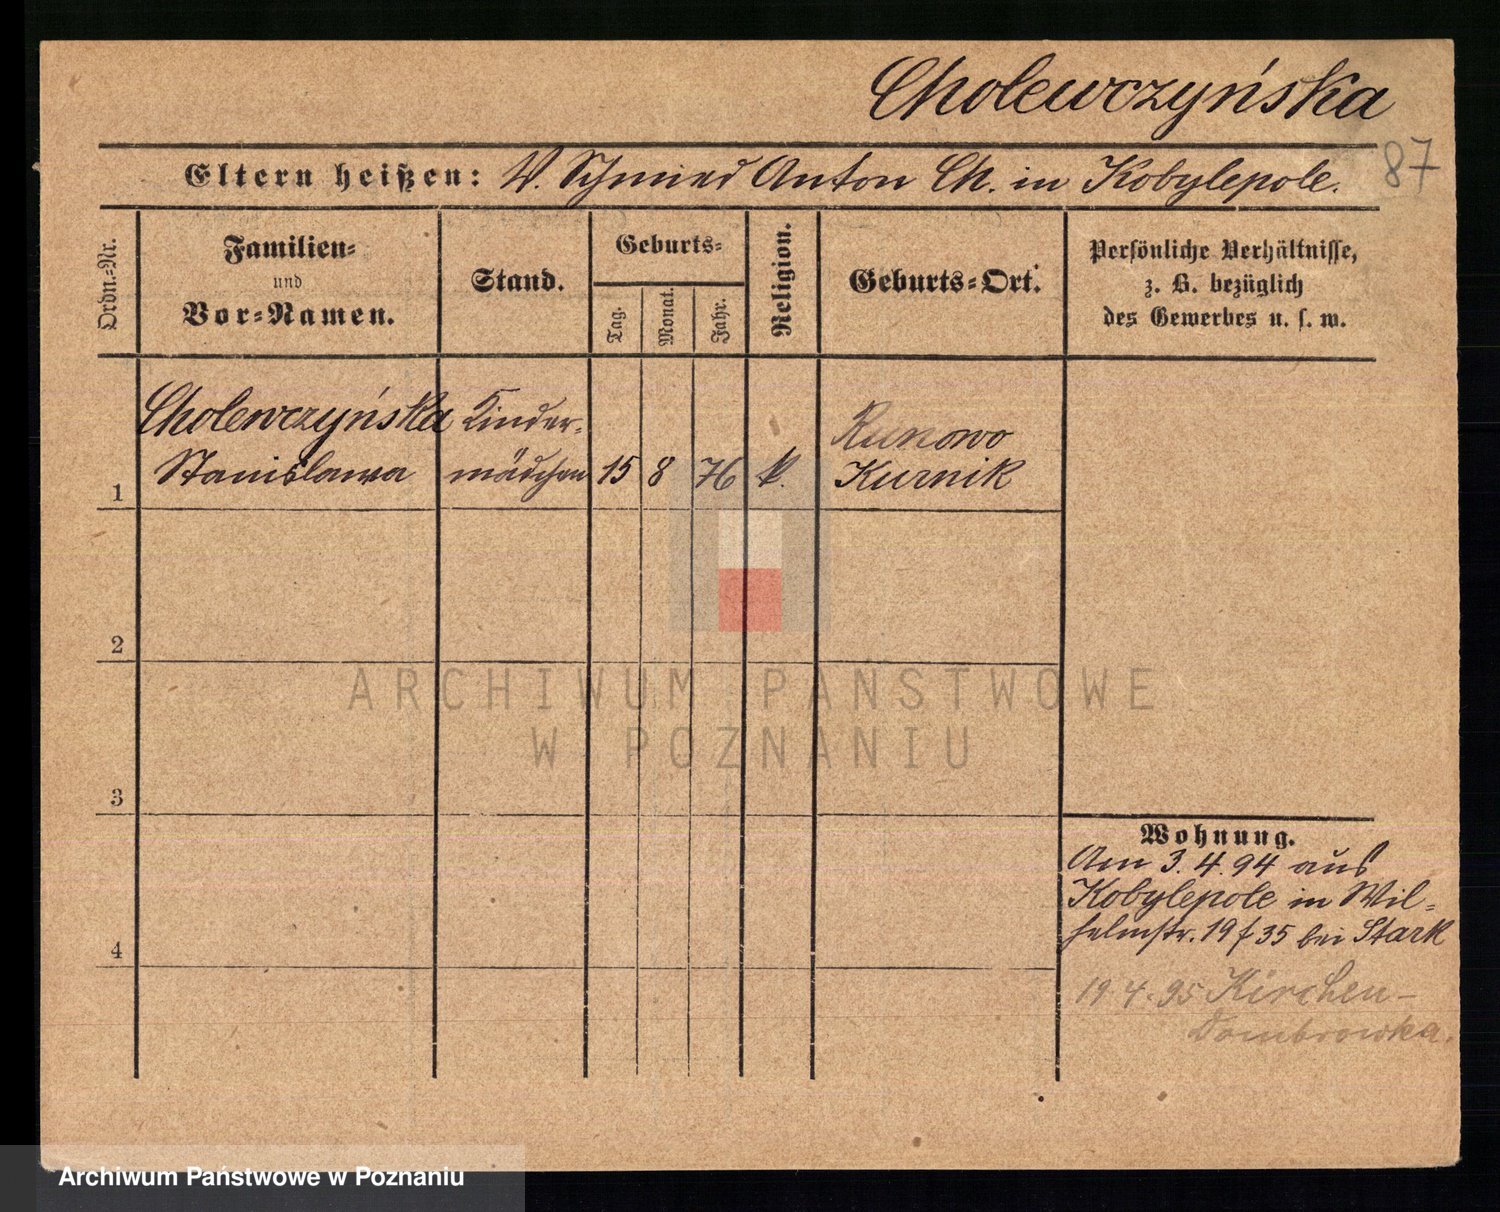 Cholewczyńska
87
Eltern heißen: V. Schmied Anton Ch. in Kobylepole.
Ordn.-Nr.
Familien-
und
Vor-Namen.
Stand.
Geburts-
Tag.
Monat.
Jahr.
Religion.
Geburts-Ort.
Persönliche Verhältnisse,
z. B. bezüglich
des Gewerbes u. s. w.
1
Cholewczyńska
Stanislawa
Kinder-
mädchen
15
8
76
k.
Runowo
Kurnik
2
3
4
Wohnung.
Am 3.4.94 aus
Kobylepole in Wil-
helmstr. 19 f 35 bei Stark
19.4.95 Kirchen-
Dombrowka.
ARCHIWUM PAŃSTWOWE
W POZNANIU
Archiwum Państwowe w Poznaniu